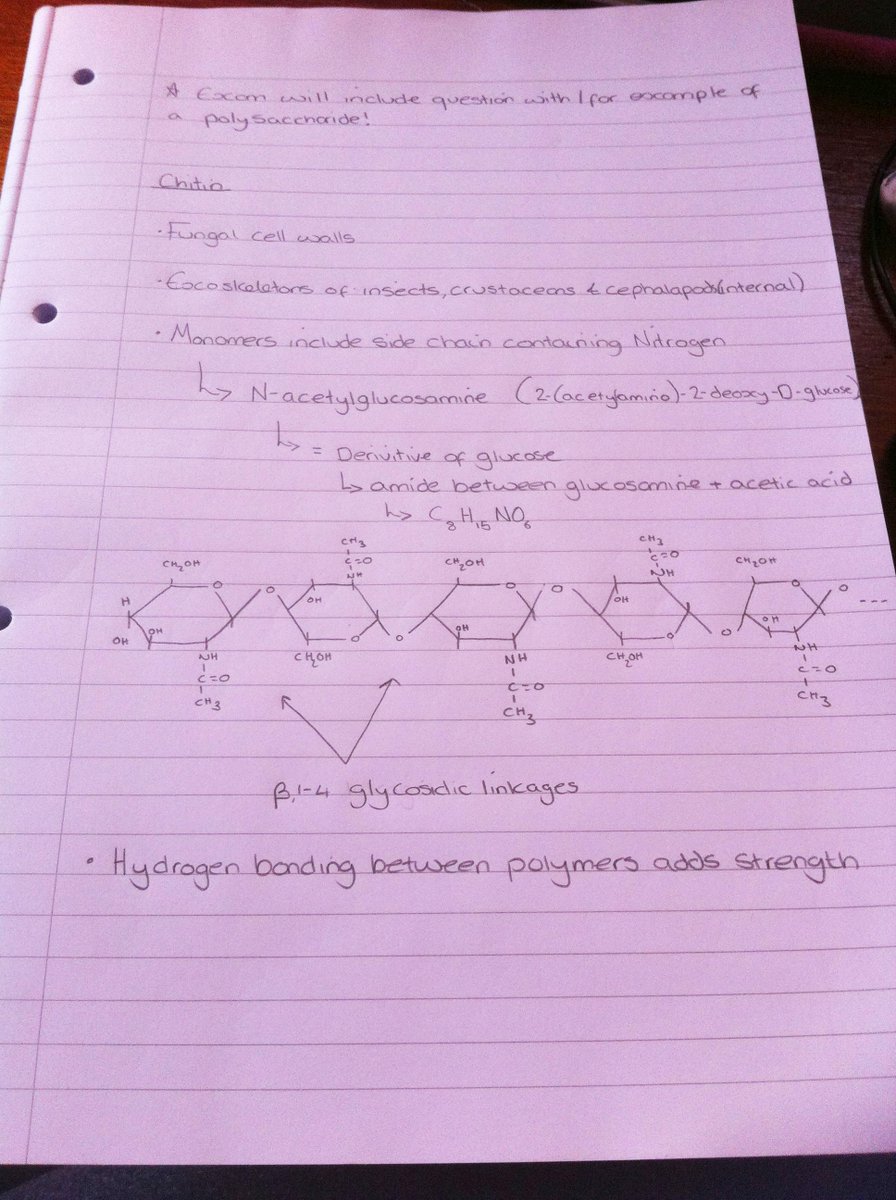 * Exam will include question with/for example of
a polysaccharide!
Chitin
· Fungal cell walls
· Exoskeletons of insects, crustaceans & cephalapods (internal)
· Monomers include side chain containing Nitrogen
↳ N-acetylglucosamine (2-(acetylamino)-2-deoxy-D-glucose)
↳ = Derivitive of glucose
↳ amide between glucosamine + acetic acid
↳ C8H15NO6
CH3 CH3
CH2OH C=O CH2OH C=O CH2OH
NH NH
O O O O O O
H OH OH ---
OH OH OH OH
O O O O
NH CH2OH NH CH2OH NH
C=O C=O C=O
CH3 CH3 CH3
β,1-4 glycosidic linkages
• Hydrogen bonding between polymers adds strength